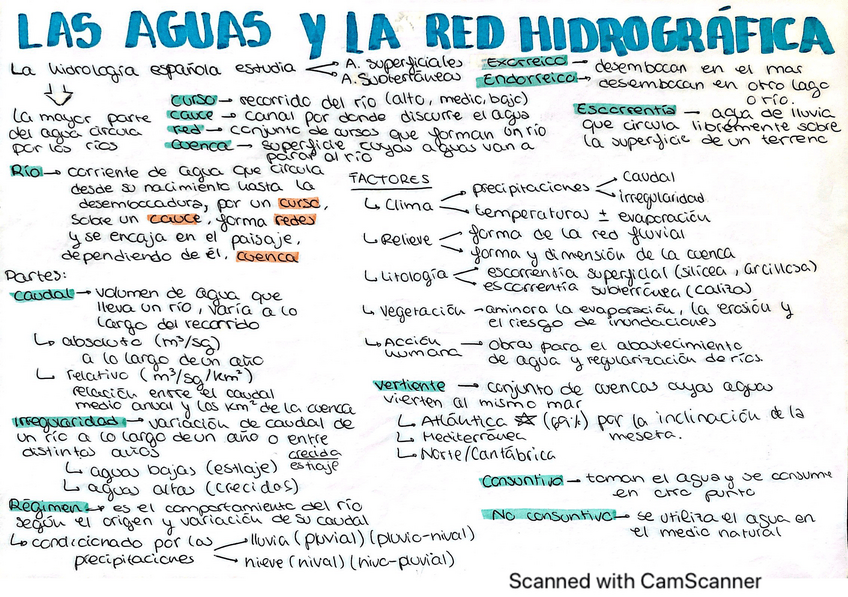 LAS AGUAS Y LA RED HIDROGRÁFICA
La hidrología española estudia
A. superficiales
A. subterráneas
Exorreica → desembocan en el mar
Endorreica → desembocan en otro lago
o río.
La mayor parte
del agua circula
por los ríos
curso → recorrido del río (alto, medio, bajo)
cauce → canal por donde discurre el agua
red → conjunto de cursos que forman un río
cuenca → superficie cuyas aguas van a
parar al río
Escorrentía → agua de lluvia
que circula libremente sobre
la superficie de un terreno
Río → corriente de agua que circula
desde su nacimiento hasta la
desembocadura, por un curso,
sobre un cauce, forma redes
y se encaja en el paisaje,
dependiendo de él, cuenca
Partes:
caudal → volumen de agua que
lleva un río, varía a lo
largo del recorrido
↳ absoluto (m³/sg)
a lo largo de un año
↳ relativo (m³/sg/km²)
relación entre el caudal
medio anual y los km² de la cuenca
Irregularidad → variación de caudal de
un río a lo largo de un año o entre
distintos años
crecida
estiaje
↳ aguas bajas (estiaje)
↳ aguas altas (crecidas)
Régimen → es el comportamiento del río
según el origen y variación de su caudal
↳ condicionado por las
precipitaciones
lluvia (pluvial) (pluvio-nival)
nieve (nival) (nivo-pluvial)
FACTORES
↳ Clima
precipitaciones
caudal
irregularidad
temperaturas ± evaporación
↳ Relieve
forma de la red fluvial
forma y dimensión de la cuenca
↳ Litología
escorrentía superficial (silícea, arcillosa)
escorrentía subterránea (caliza)
↳ Vegetación → aminora la evaporación, la erosión y
el riesgo de inundaciones
↳ Acción
humana → obras para el abastecimiento
de agua y regularización de ríos.
vertiente → conjunto de cuencas cuyas aguas
vierten al mismo mar
↳ Atlántica ☆ (69%) por la inclinación de la
meseta.
↳ Mediterránea
↳ Norte/Cantábrica
Consuntivo → toman el agua y se consume
en otro punto
No consuntivo → se utiliza el agua en
el medio natural
Scanned with CamScanner